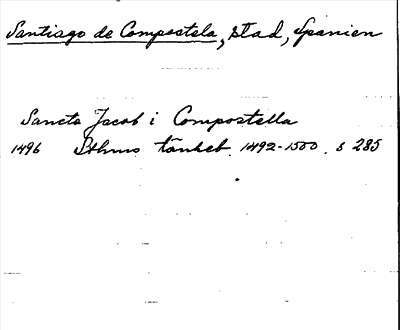 Santiago de Compostela, stad, Spanien
Sancte Jacob i Compostella
1496 Sthms tänkeb. 1492-1500. s 285